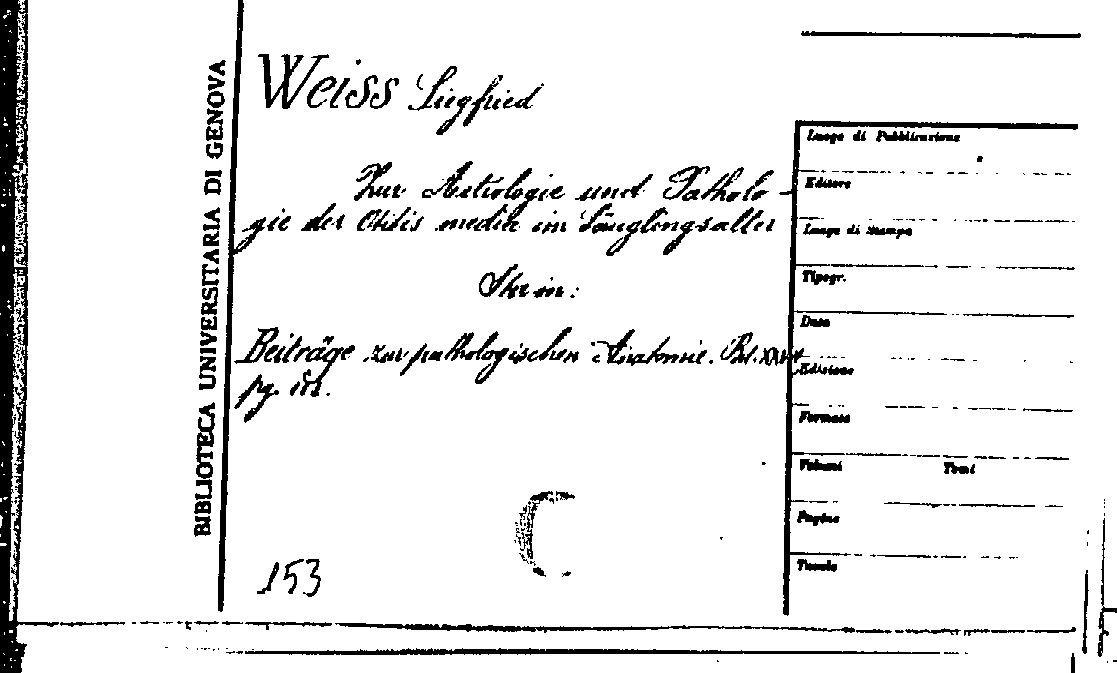 BIBLIOTECA UNIVERSITARIA DI GENOVA
Weiss Siegfried
Zur Aetiologie und Patholo-
gie der Otitis media im Säuglingsalter
Sta in:
Beiträge zur pathologischen Anatomie. Bd.
pg.
153
Luogo di Pubblicazione
Editore
Luogo di stampa
Tipogr.
Data
Edizione
Formato
Volumi Tomi
Pagine
Tavole